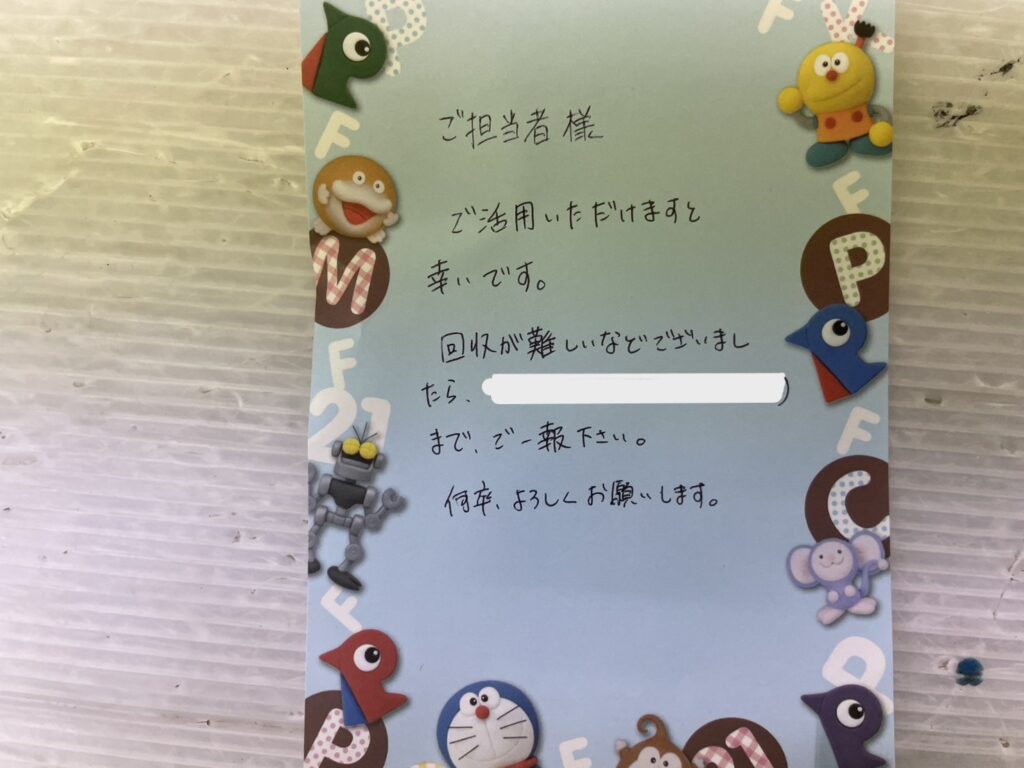 ご担当者様
ご活用いただけますと
幸いです。
回収が難しいなどございまし
たら、 )
まで、ご一報下さい。
何卒、よろしくお願いします。
P
F
M
F
21
F
P
F
F
P
F
C
P
F
21